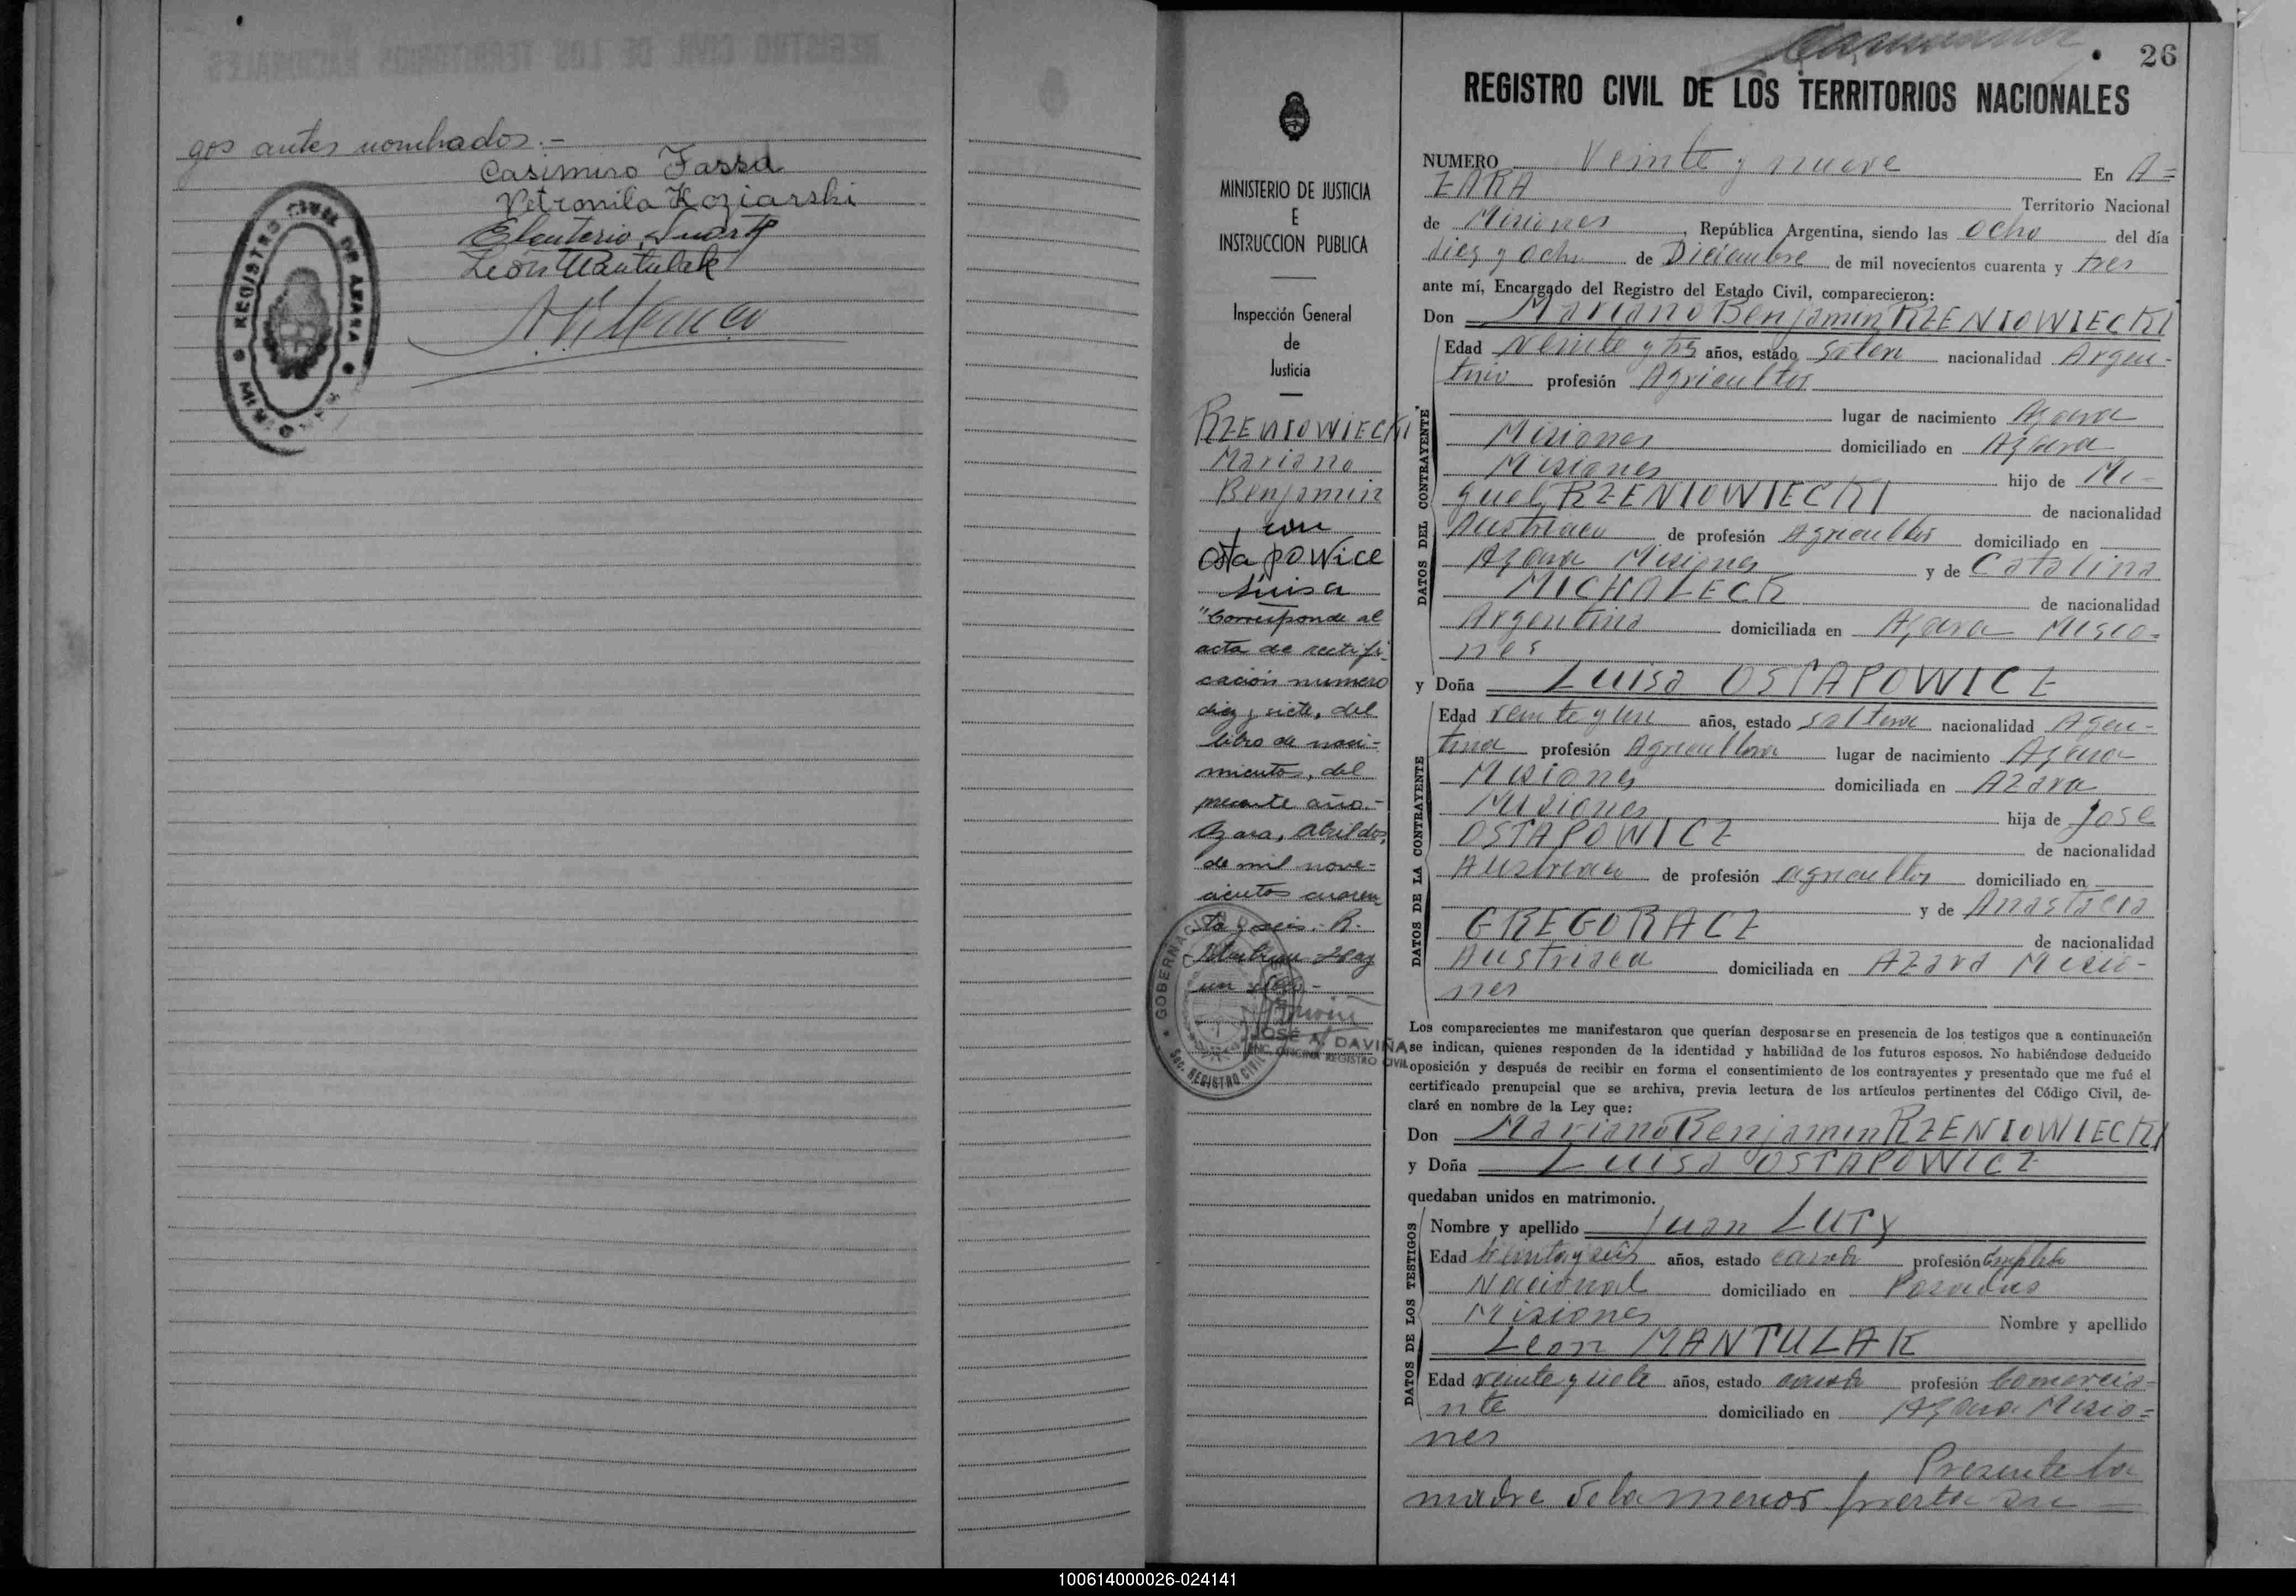 gos antes nombados.-
Casimiro Fassa
Petronila Koziarski
Eleuterio Duarte
León Mantulak
REGISTRO CIVIL DE AZARA
26
REGISTRO CIVIL DE LOS TERRITORIOS NACIONALES
MINISTERIO DE JUSTICIA
E
INSTRUCCION PUBLICA
Inspección General
de
Justicia
RZENIOWIECKI
Mariano
Benjamin
con
Ostapowice
Luisa
"Corresponde al
acta de rectifi-
cación numero
diez y siete, del
libro de naci-
mientos, del
presente año.-
Azara, Abril dos,
de mil nove-
cientos cuaren
ta y seis.- R.
un sello-
GOBERNACION
Sec. REGISTRO CIVIL
JOSE A. DAVIÑA
ENC. OFICINA REGISTRO CIVIL
NUMERO Veinte y nueve En A=
ZARA Territorio Nacional
de Misiones, República Argentina, siendo las ocho del día
diez y ocho de Diciembre de mil novecientos cuarenta y tres
ante mí, Encargado del Registro del Estado Civil, comparecieron:
Don Mariano Benjamin RZENIOWIECKI
DATOS DEL CONTRAYENTE
Edad veinte y tres años, estado soltero nacionalidad Argen-
tino profesión Agricultor
lugar de nacimiento Azara
Misiones domiciliado en Azara
Misiones hijo de Mi-
guel RZENIOWIECKI de nacionalidad
Austriaco de profesión Agricultor domiciliado en
Azara Misiones y de Catalina
MICHALECK de nacionalidad
Argentina domiciliada en Azara Misio-
nes
y Doña Luisa OSTAPOWICZ
DATOS DE LA CONTRAYENTE
Edad veinte y un años, estado soltera nacionalidad Agen-
tina profesión Agricultora lugar de nacimiento Azara
Misiones domiciliada en Azara
Misiones hija de José
OSTAPOWICZ de nacionalidad
Austriaca de profesión agricultor domiciliado en
y de Anastacia
GREGORACZ de nacionalidad
Austriaca domiciliada en Azara Misio-
nes
Los comparecientes me manifestaron que querían desposarse en presencia de los testigos que a continuación
se indican, quienes responden de la identidad y habilidad de los futuros esposos. No habiéndose deducido
oposición y después de recibir en forma el consentimiento de los contrayentes y presentado que me fué el
certificado prenupcial que se archiva, previa lectura de los artículos pertinentes del Código Civil, de-
claré en nombre de la Ley que:
Don Mariano Benjamin RZENIOWIECKI
y Doña Luisa OSTAPOWICZ
quedaban unidos en matrimonio.
DATOS DE LOS TESTIGOS
Nombre y apellido Juan LUTY
Edad treinta y seis años, estado casado profesión Empleado
Nacional domiciliado en Posadas
Misiones Nombre y apellido
Leon MANTULAK
Edad veinte y siete años, estado casado profesión Comercia-
nte domiciliado en Azara Misio=
nes
Presente la
madre de la menor presta su
100614000026-024141